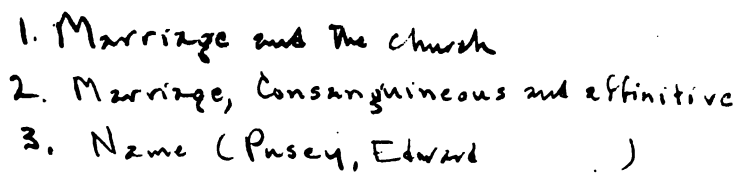 1. Marriage and the church
2. Marriage, Consanguineous and affinitive
3. Name (Pusey, Edward )